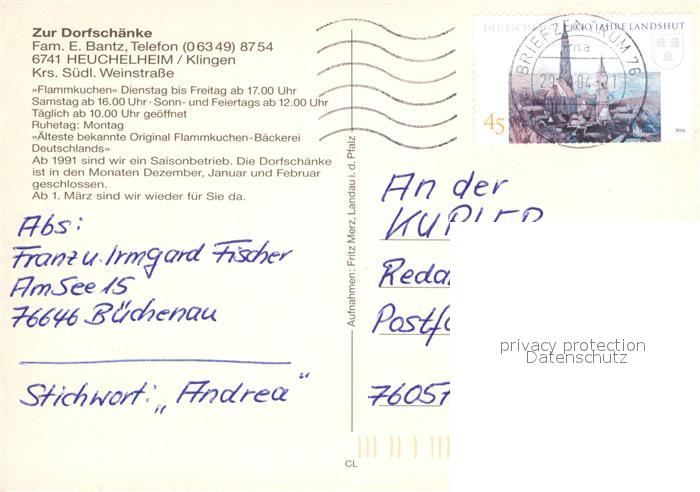 Zur Dorfschänke
Fam. E. Bantz, Telefon (0 63 49) 87 54
6741 HEUCHELHEIM / Klingen
Krs. Südl. Weinstraße
»Flammkuchen« Dienstag bis Freitag ab 17.00 Uhr
Samstag ab 16.00 Uhr · Sonn- und Feiertags ab 12.00 Uhr
Täglich ab 10.00 Uhr geöffnet
Ruhetag: Montag
»Älteste bekannte Original Flammkuchen-Bäckerei
Deutschlands«
Ab 1991 sind wir ein Saisonbetrieb. Die Dorfschänke
ist in den Monaten Dezember, Januar und Februar
geschlossen.
Ab 1. März sind wir wieder für Sie da.
Abs:
Franz u. Irmgard Fischer
Am See 15
76646 Büchenau
Stichwort: „Andrea"
Aufnahmen: Fritz Merz, Landau i. d. Pfalz
CL
800 JAHRE LANDSHUT
BRIEFZENTRUM 76
45
2004
An der
KURIER
Reda
Postf
76057
privacy protection
Datenschutz